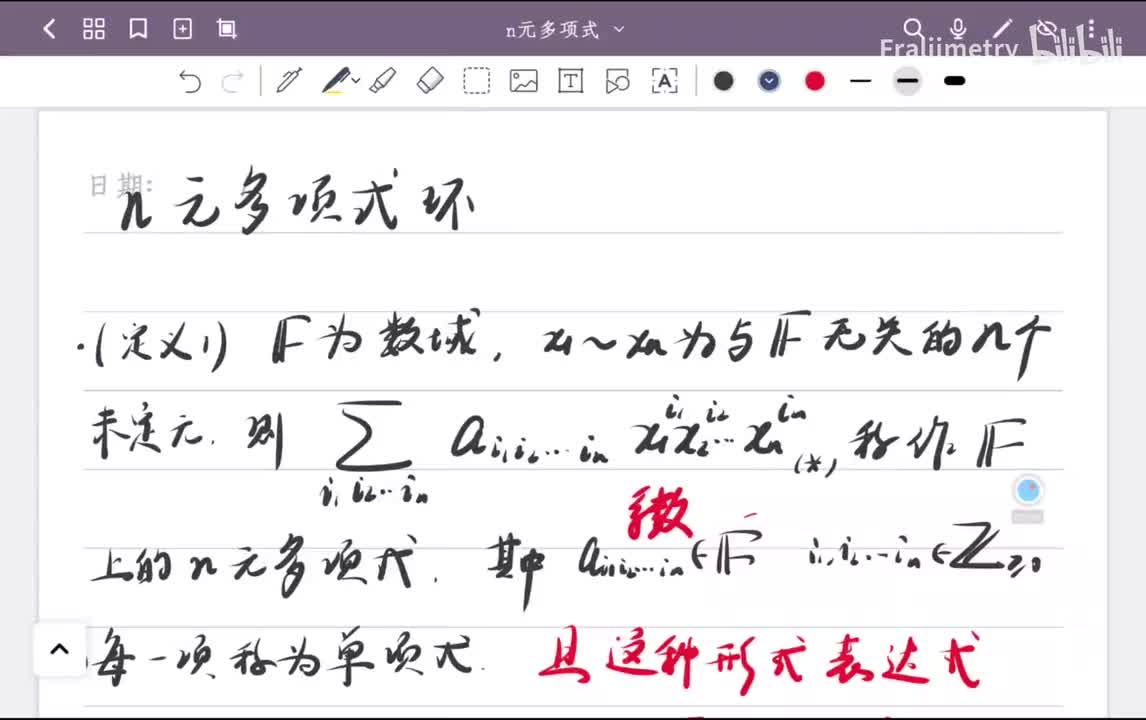 n元多项式
Fraljimetry bilibili
日期:
n元多项式环
·(定义1) 𝔽为数域, x₁~xₙ为与𝔽无关的n个
未定元. 则 ∑ a_{i₁i₂…iₙ} x₁^{i₁}x₂^{i₂}…xₙ^{iₙ} (*) 称作𝔽
i₁ i₂…iₙ
系数
上的n元多项式. 其中 a_{i₁i₂…iₙ}∈𝔽 i₁,i₂…iₙ∈ℤ≥0
每一项称为单项式. 且这种形式表达式